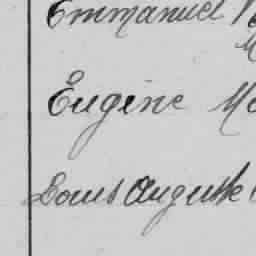 Emmanuel
Eugène
Louis Auguste